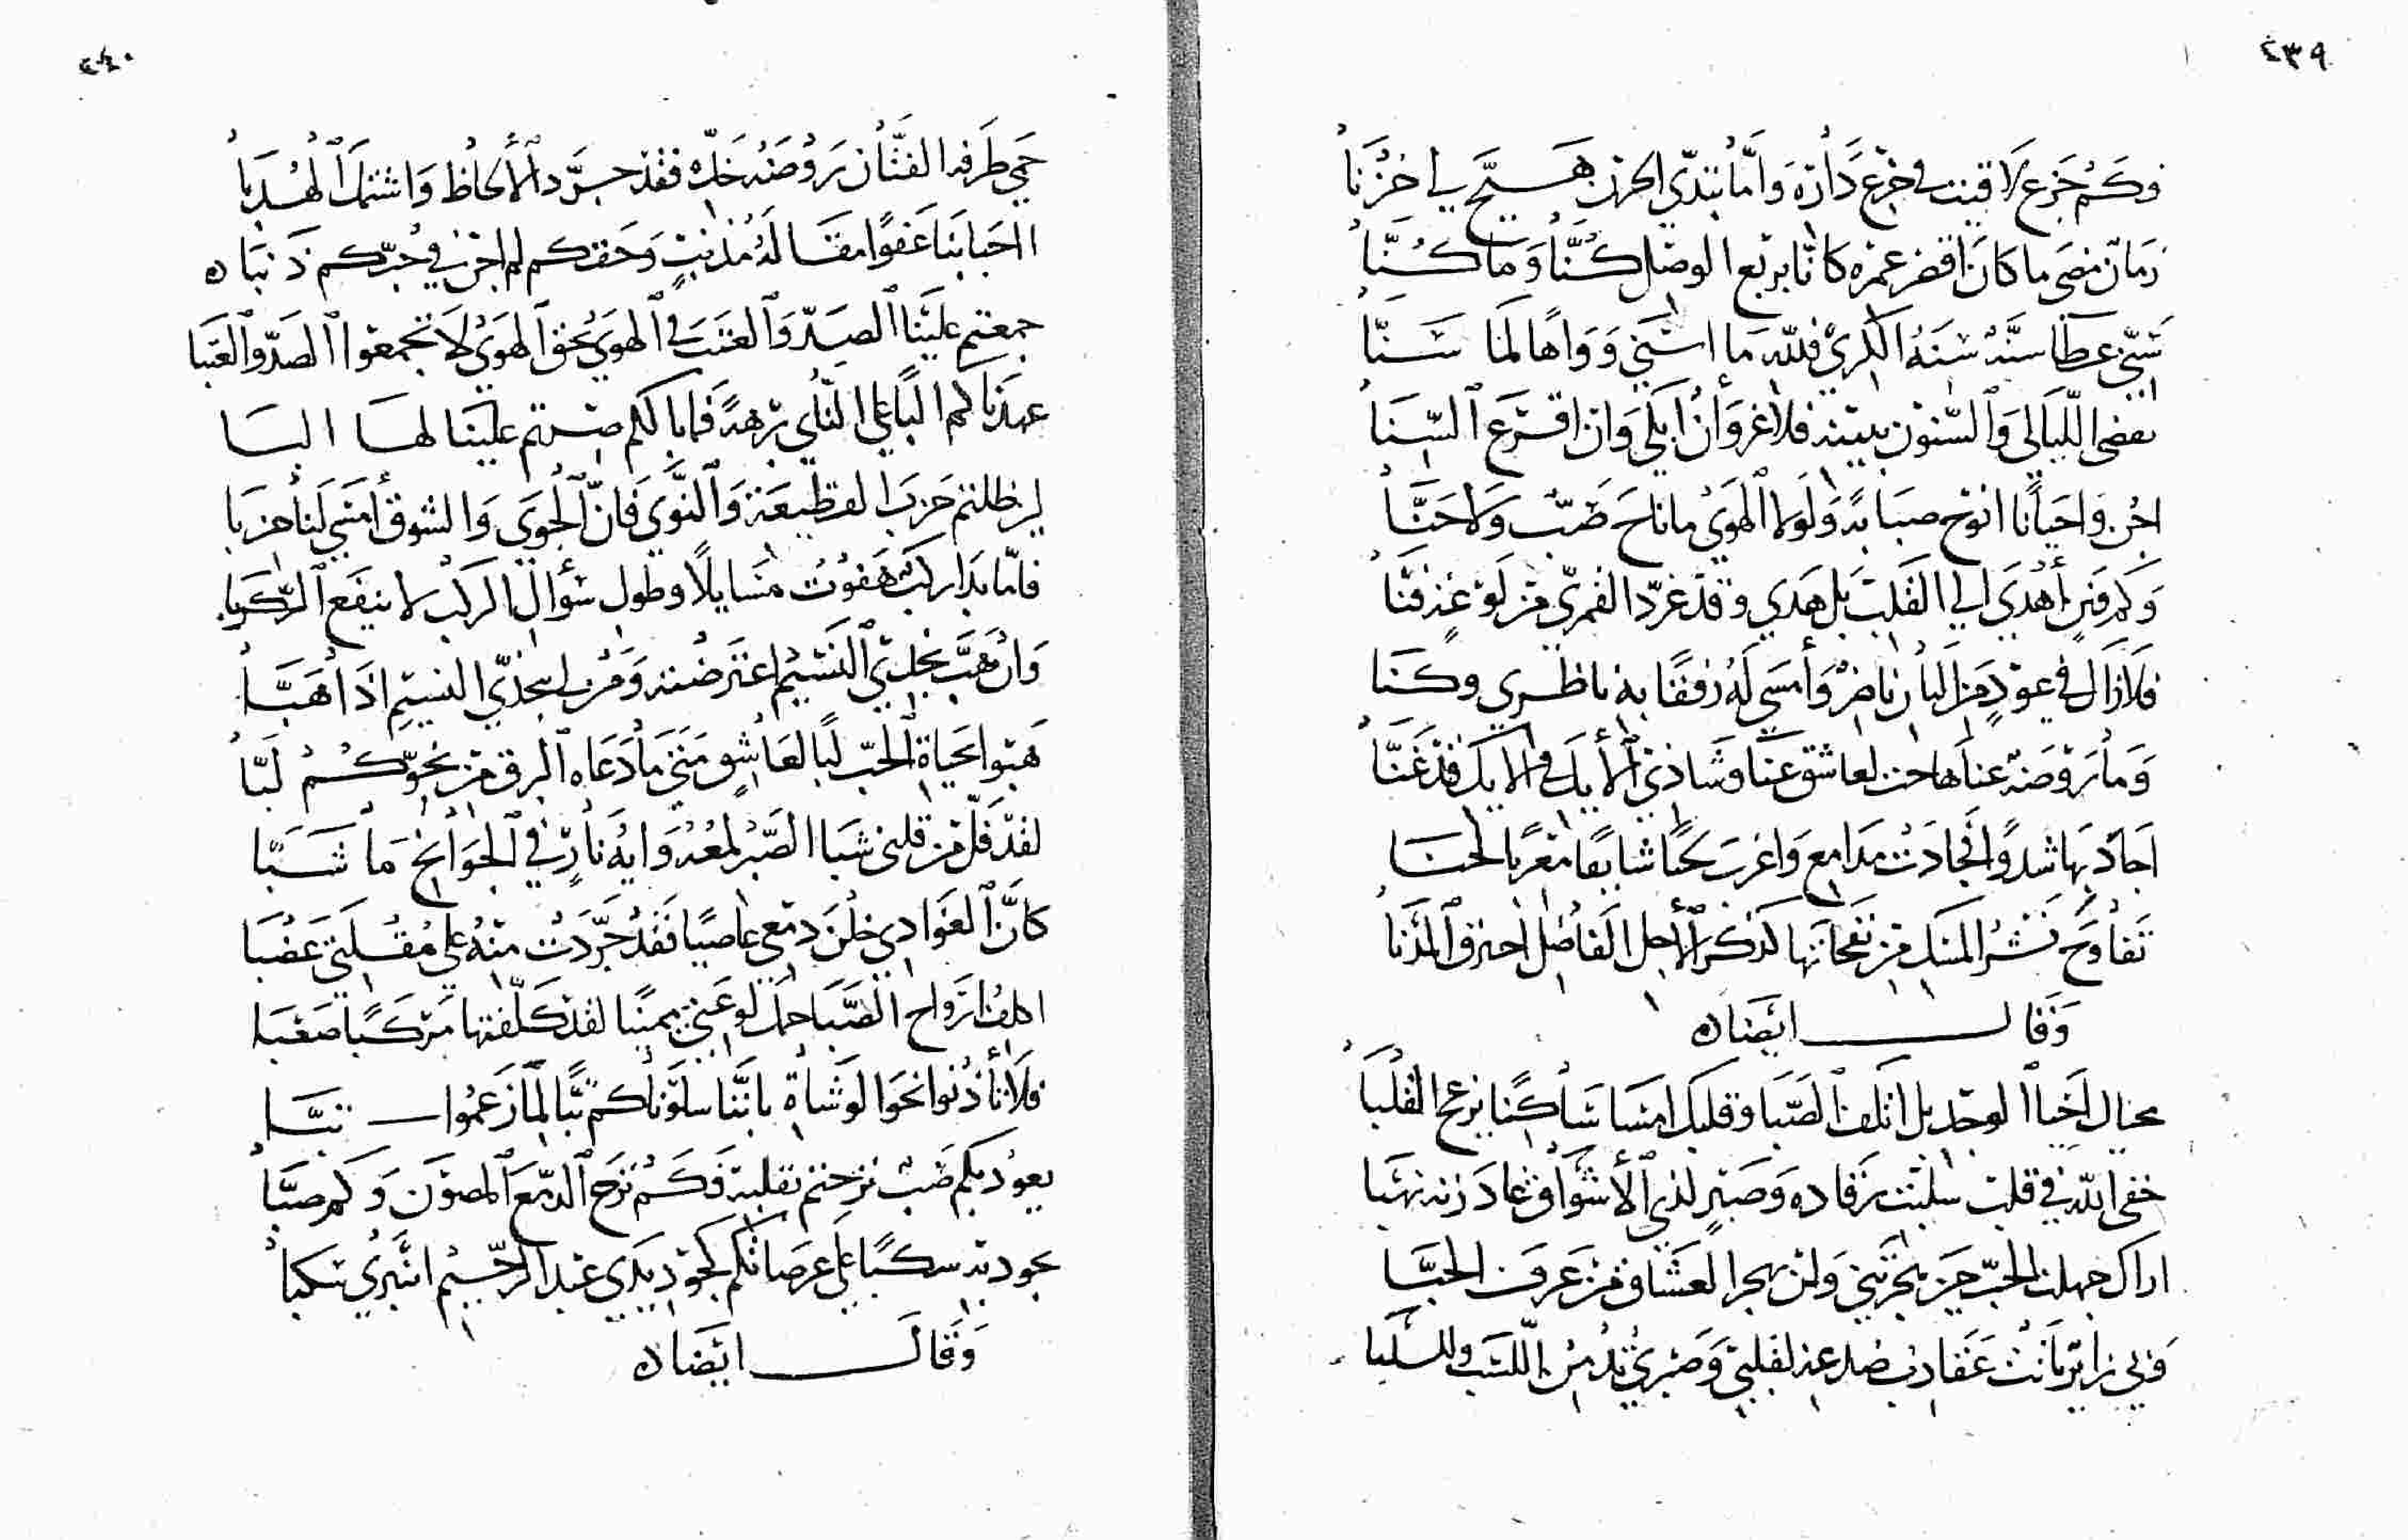 ٤٣٩
فوكَمْ جزع لاقيت في جزع دَارَةَ وَأمَّا تبدّى الحزن هَيَّج لي حُزْنَا
زمان مضى ما كانَ اقصر عمره كانَّا بربع الوصْل كُنَّا وَما كُنَّا
سَنَةُ الكرى فللّه مَا اسْنى وَوَاهًا لمَا سَنَّا
تقضى اللّيَالى وَالسّنون فلا غروَ أنْ ابكى وَان اقرَع السّنَا
احن وَاحيَانًا انوح صبَابةً وَلَولا الهوَى ما ناحَ صَبّ وَلا حَنَّا
وَكم فنن أهْدَى الى القَلبَ بَل هَدى وقد غرّد القمرىّ من فوْق غُصْن
فلا زال في عودٍ من البَان ناضرٌ وَأمسى لَهُ رفقًا به ناظرى وكنَا
وَما رَوضَة عنا وَشَادي الأيك في الايك قد غَنَّا
اجَادَ بهَا شدوًا فجَادَتْ مدَامع وَاغربَ لحنًا شايقًا مغربًا لحنَا
تفاوَح نَشْرُ المسَك من نفحاتهَا كذكر الأجل الفَاضل
وَقَالــــ ايْضًا ه
بحَال اخَيا الوجْد بل اتلف الصَّبَا وَقلبك امسَا سَاكنًا يزعج القلْبَا
خفِ اللّه في قلب سلبْتَ رقَاده وَصبْرٍ لذى الأشوَاق غادَرته نهْبَا
اراكَ جهلت الحبّ حين هجرْتني وَلن يهجرَ العشاق من عَرف الحبَّا
وَبى زائر بَانتْ عَقارب صدغه لقلبى وَصبرى
٤٤٠
حمى طَرفه الفتَّان رَوْضَة خَدّه فقد جرَّد الألحاظ وَاشتمل الهُدبَا
ااحبَابنَا عَفوًا مقَالَةُ مُذنبٍ وَحقكم لم اجن في حُبّكم ذَنبًا ه
جمعتم عليْنَا الصَدّ وَالعتبَ في الهوَى بحق الهوَى لا تجمعوا الصَدّ وَالعتبَا
عهدنَاكم البًا على النَّاى برْهةً فما بالكم صرتم علَيْنَا لهَا البَا
لين ظلتم حَزبَ القطيعَة وَالنَّوَى فَانّ الجوَى وَالشوق أمسى لَنا حزبَا
فلمّا بدَا ركبٌ هَفوْتُ مسَايلاً وطول سؤال الركب لا ينفَع الرَّكبَا
وَانْ هَبَّ نجدىّ النَسيمُ اعترضته وَمنْ لى بنجدّى النسيم اذَا هَبَّا
هبوا لحيَاة الحبّ لبًا لعَاشقٍ متى مَا دَعَاه البرق من نحوكُمْ لَبَّا
لقد فَلّ من قلبى شبَا الصَّبر بُعْدُ وَاية نَارٍ في الجوَانح مَا شَبَّا
كانَّ الغوَادى خلْنَ دمعى عاصيًا فَقَدْ جَرّدَتْ منْهُ على مُقْلَتي عَضْبَا
اكلف ازوَاح الصَّبَا حمْل لوعَتى يمينًا لقد كَلّفتهَا مَركَبًا صَعْبَا
فلا تأذنوا نحوَ الوشَاة بانَّنا سلوْناكم تبًّا لمَا زَعمُوا ــــ تبَّا
يعود بكم صَبّ نزحتم بقلبه فَكَمْ نزحَ الدمْعَ المصوْن وَكم صبَّا
يجود به سكبًا على عرَصاتكم كجُود يدَي عبْد الرحيْم انْبَرى سَكبا
وَقَالَــــ ايْضًا ه